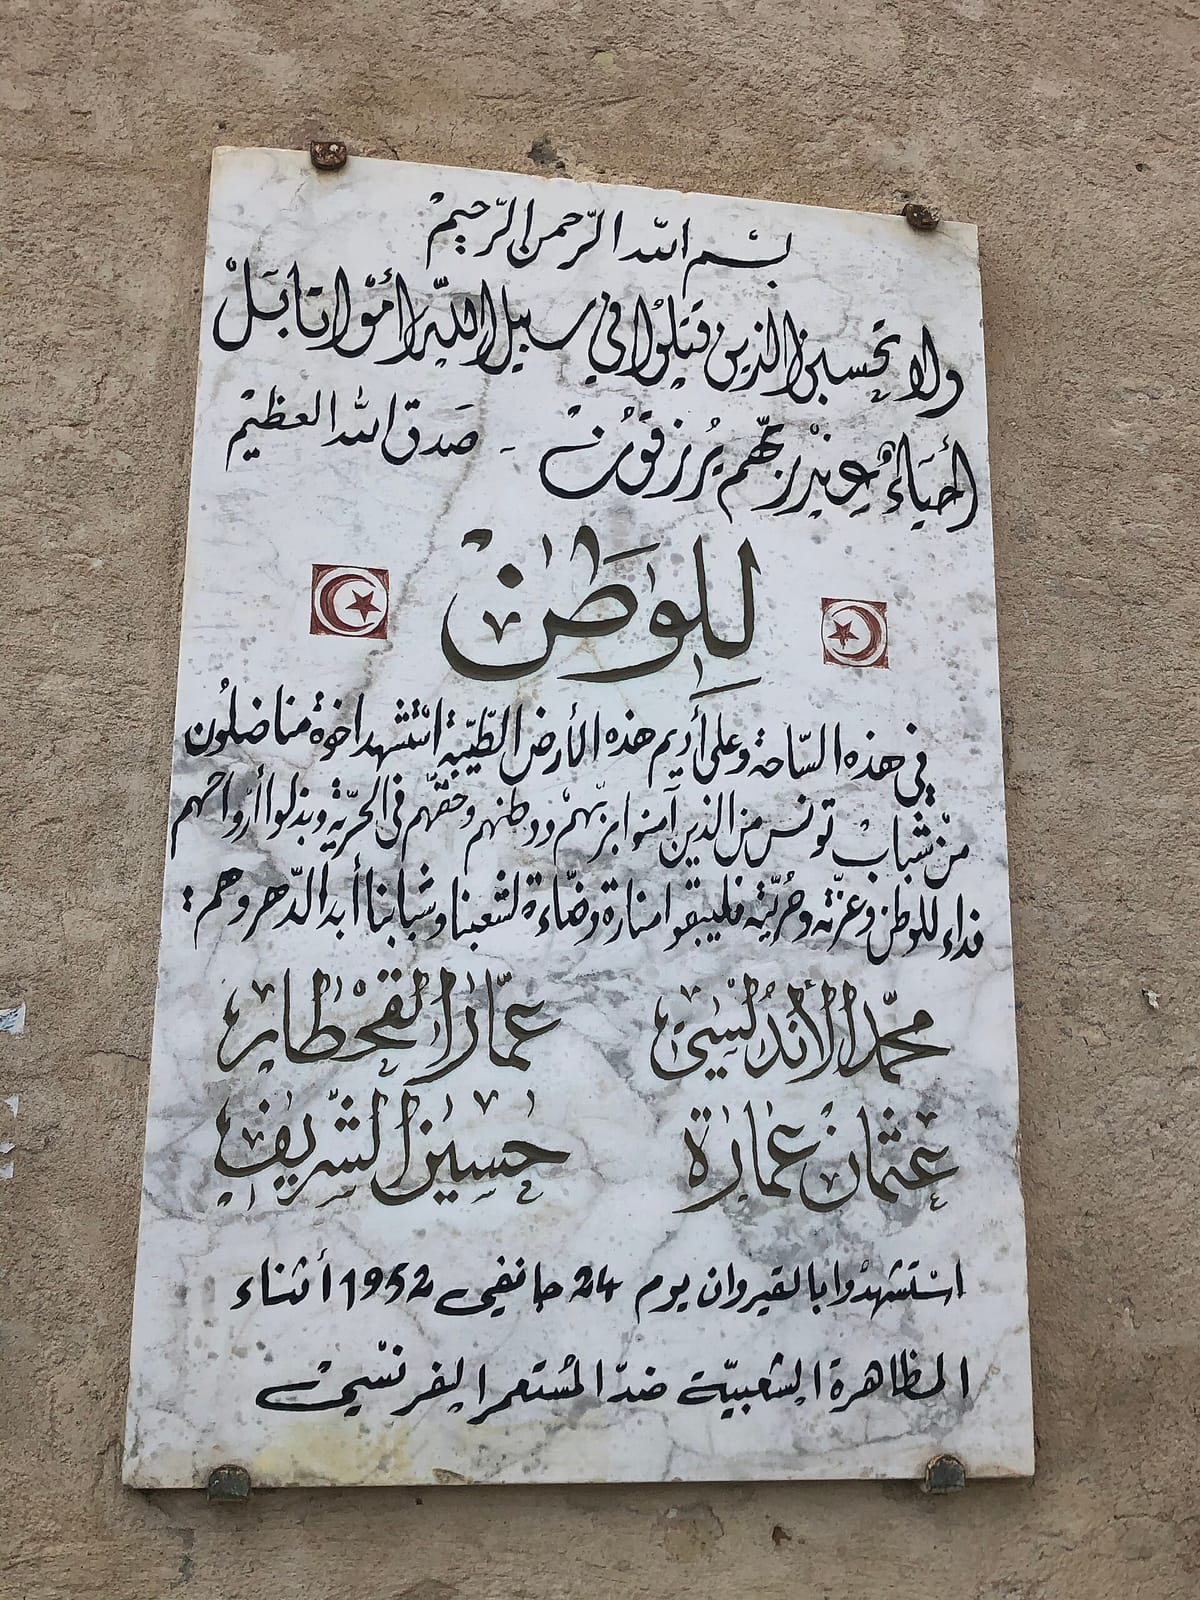 بسم الله الرحمن الرحيم
ولا تحسبن الذين قتلوا في سبيل الله أمواتا بل
أحياء عند ربهم يرزقون - صدق الله العظيم
للوطن
في هذه الساحة وعلى أديم هذه الأرض الطيبة استشهد اخوة مناضلون
من شباب تونس من الذين آمنوا بربهم ووطنهم وحقهم في الحرية وبذلوا أرواحهم
فداء للوطن وعزته وحريته فليبقوا منارة وضاءة لشعبنا وشبابنا أبد الدهر وهم :
محمد الأندلسي عمار القحطار
عثمان عمارة حسين الشريف
استشهدوا بالقيروان يوم 24 جانفي 1952 أثناء
المظاهرة الشعبية ضد المستعمر الفرنسي